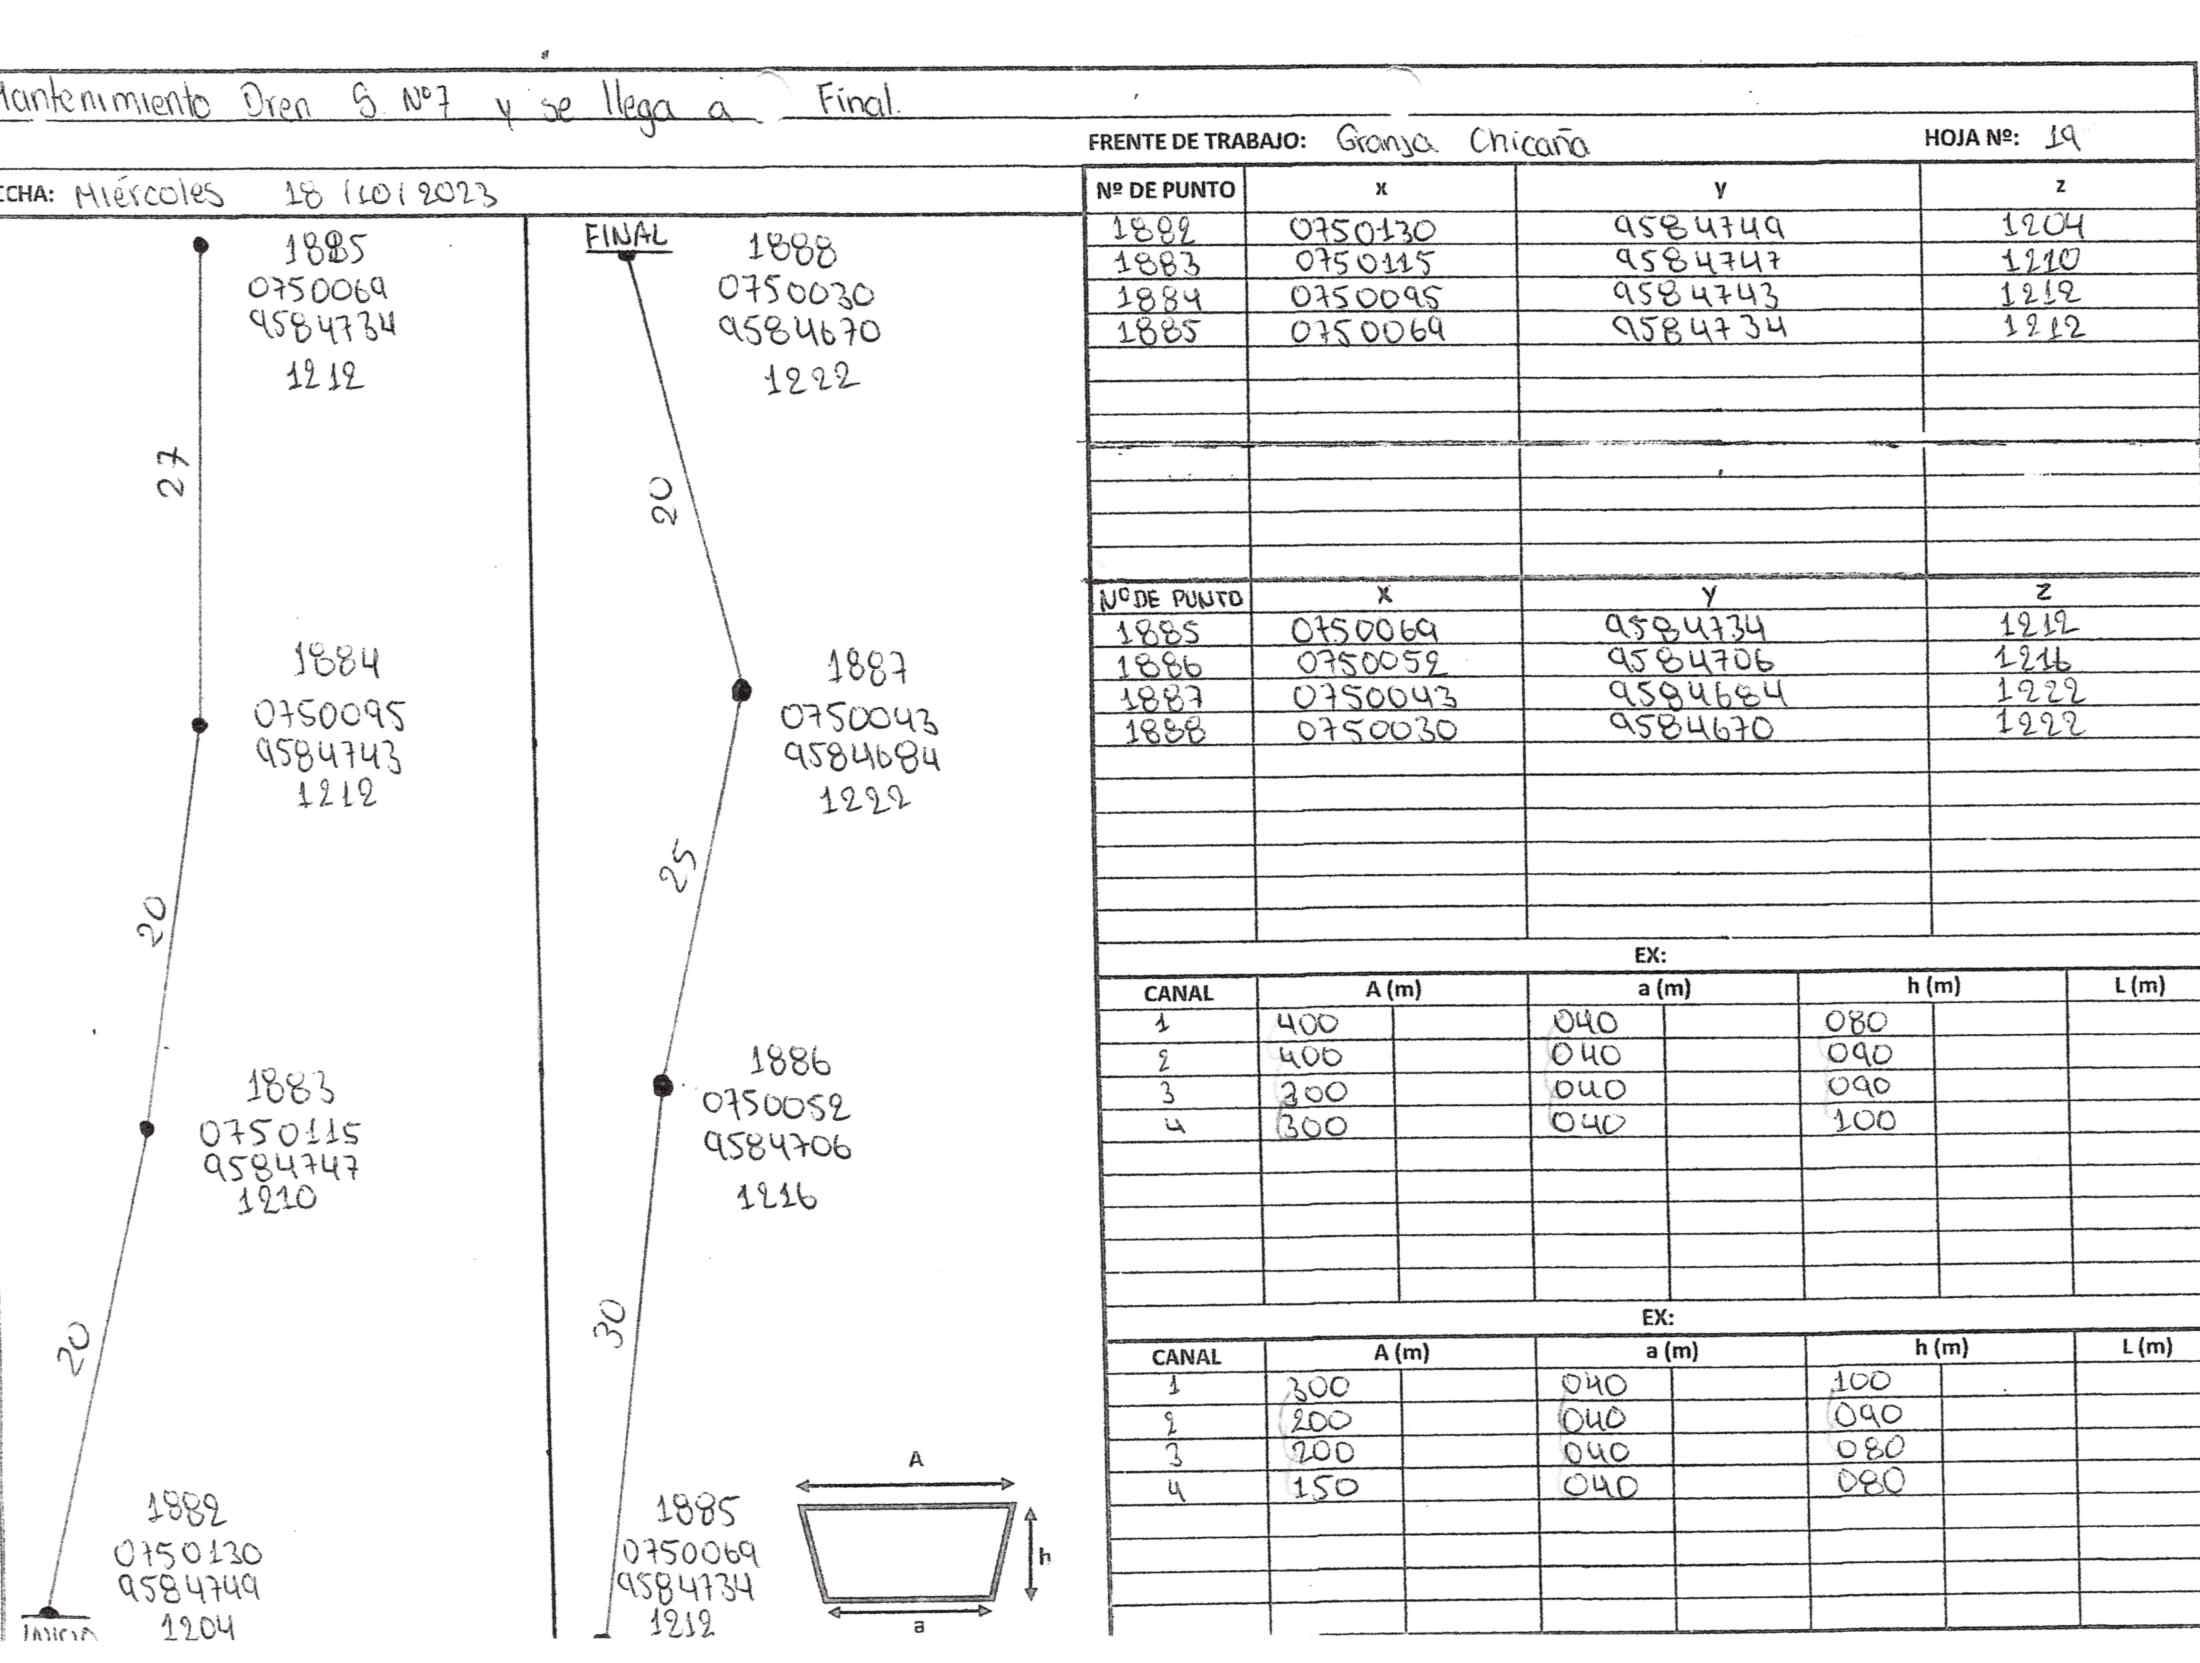 Mantenimiento Dren S Nº7 y se llega a Final.
FRENTE DE TRABAJO: Granja Chicaña HOJA Nº: 19
ECHA: Miércoles 18/10/2023
1885
0750069
9584734
1212
27
1884
0750095
9584743
1212
20
1883
0750115
9584747
1210
20
1882
0750130
9584749
1204
INICIO
FINAL
1888
0750030
9584670
1222
20
1887
0750043
9584684
1222
25
1886
0750052
9584706
1216
30
1885
0750069
9584734
1212
A
h
a
Nº DE PUNTO x y z
1882 0750130 9584749 1204
1883 0750115 9584747 1210
1884 0750095 9584743 1212
1885 0750069 9584734 1212
Nº DE PUNTO X Y Z
1885 0750069 9584734 1212
1886 0750052 9584706 1216
1887 0750043 9584684 1222
1888 0750030 9584670 1222
EX:
CANAL A (m) a (m) h (m) L (m)
1 400 040 080
2 400 040 090
3 300 040 090
4 300 040 100
EX:
CANAL A (m) a (m) h (m) L (m)
1 300 040 100
2 200 040 090
3 200 040 080
4 150 040 080